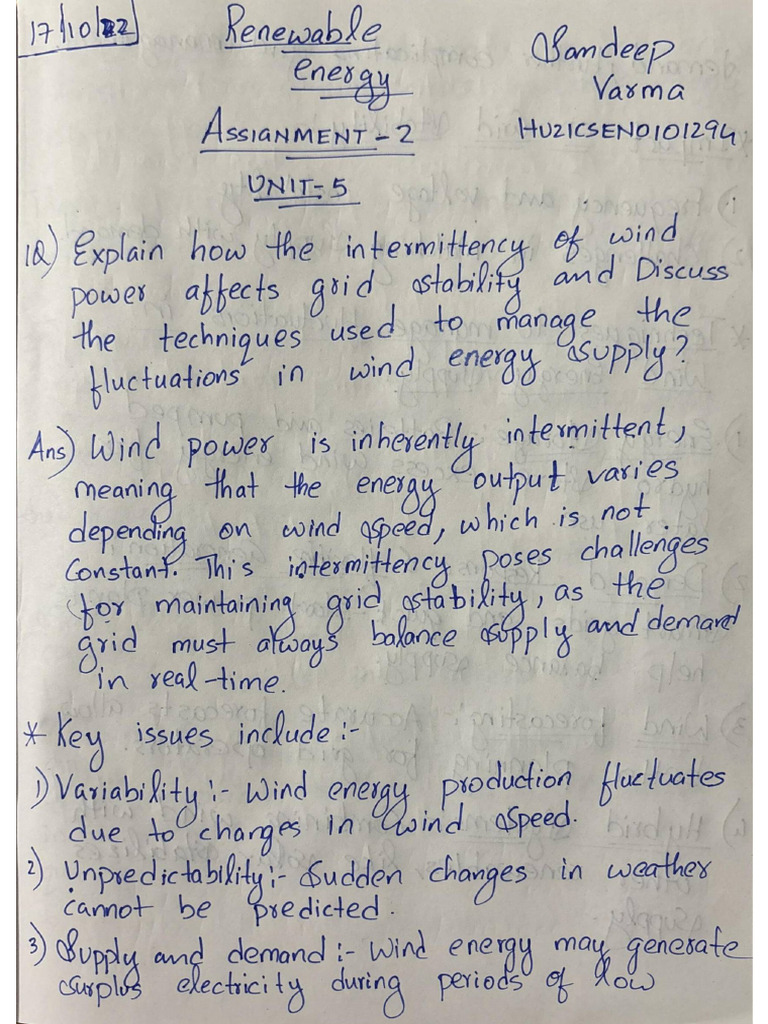 17/10/22
Renewable
energy
ASSIGNMENT-2
UNIT-5
Sandeep
Varma
HU21CSEN0101294
1Q) Explain how the intermittency of wind
power affects grid stability and Discuss
the techniques used to manage the
fluctuations in wind energy supply?
Ans) Wind power is inherently intermittent,
meaning that the energy output varies
depending on wind speed, which is not
Constant. This intermittency poses challenges
for maintaining grid stability, as the
grid must always balance supply and demand
in real-time.
* Key issues include :-
1) Variability :- Wind energy production fluctuates
due to changes in wind speed.
2) Unpredictability :- Sudden changes in weather
cannot be predicted.
3) Supply and demand :- Wind energy may generate
surplus electricity during periods of low